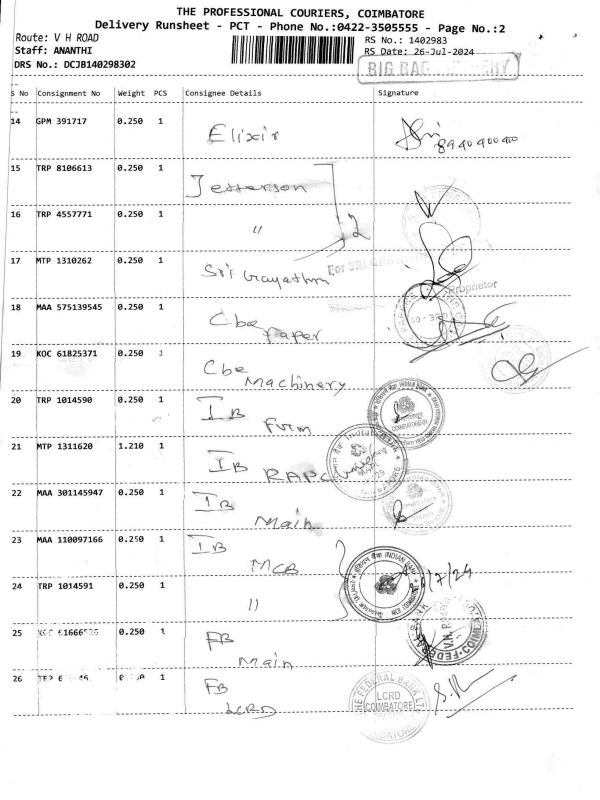 THE PROFESSIONAL COURIERS, COIMBATORE
Delivery Runsheet - PCT - Phone No.:0422-3505555 - Page No.:2
Route: V H ROAD
RS No.: 1402983
Staff: ANANTHI
RS Date: 26-Jul-2024
DRS No.: DCJB140298302
BIG BAG
S No Consignment No Weight PCS Consignee Details Signature
14 GPM 391717 0.250 1 Elixir
15 TRP 8106613 0.250 1 Jefferson
16 TRP 4557771 0.250 1 " 2
17 MTP 1310262 0.250 1 Sri Gayathri For SRI
Proprietor
18 MAA 575139545 0.250 1 Cbe Paper
19 KOC 61825371 0.250 1 Cbe Machinery
20 TRP 1014590 0.250 1 IB
COIMBATORE
21 MTP 1311620 1.210 1 IB RAPC
22 MAA 301145947 0.250 1 IB Main
23 MAA 110097166 0.250 1 IB MCB
INDIAN BANK
/7/24
24 TRP 1014591 0.250 1 "
25 KOC 0.250 1 FB Main
FEDERAL BANK
26 TRP 1 FB LCRD
THE FEDERAL BANK LTD
LCRD
COIMBATORE